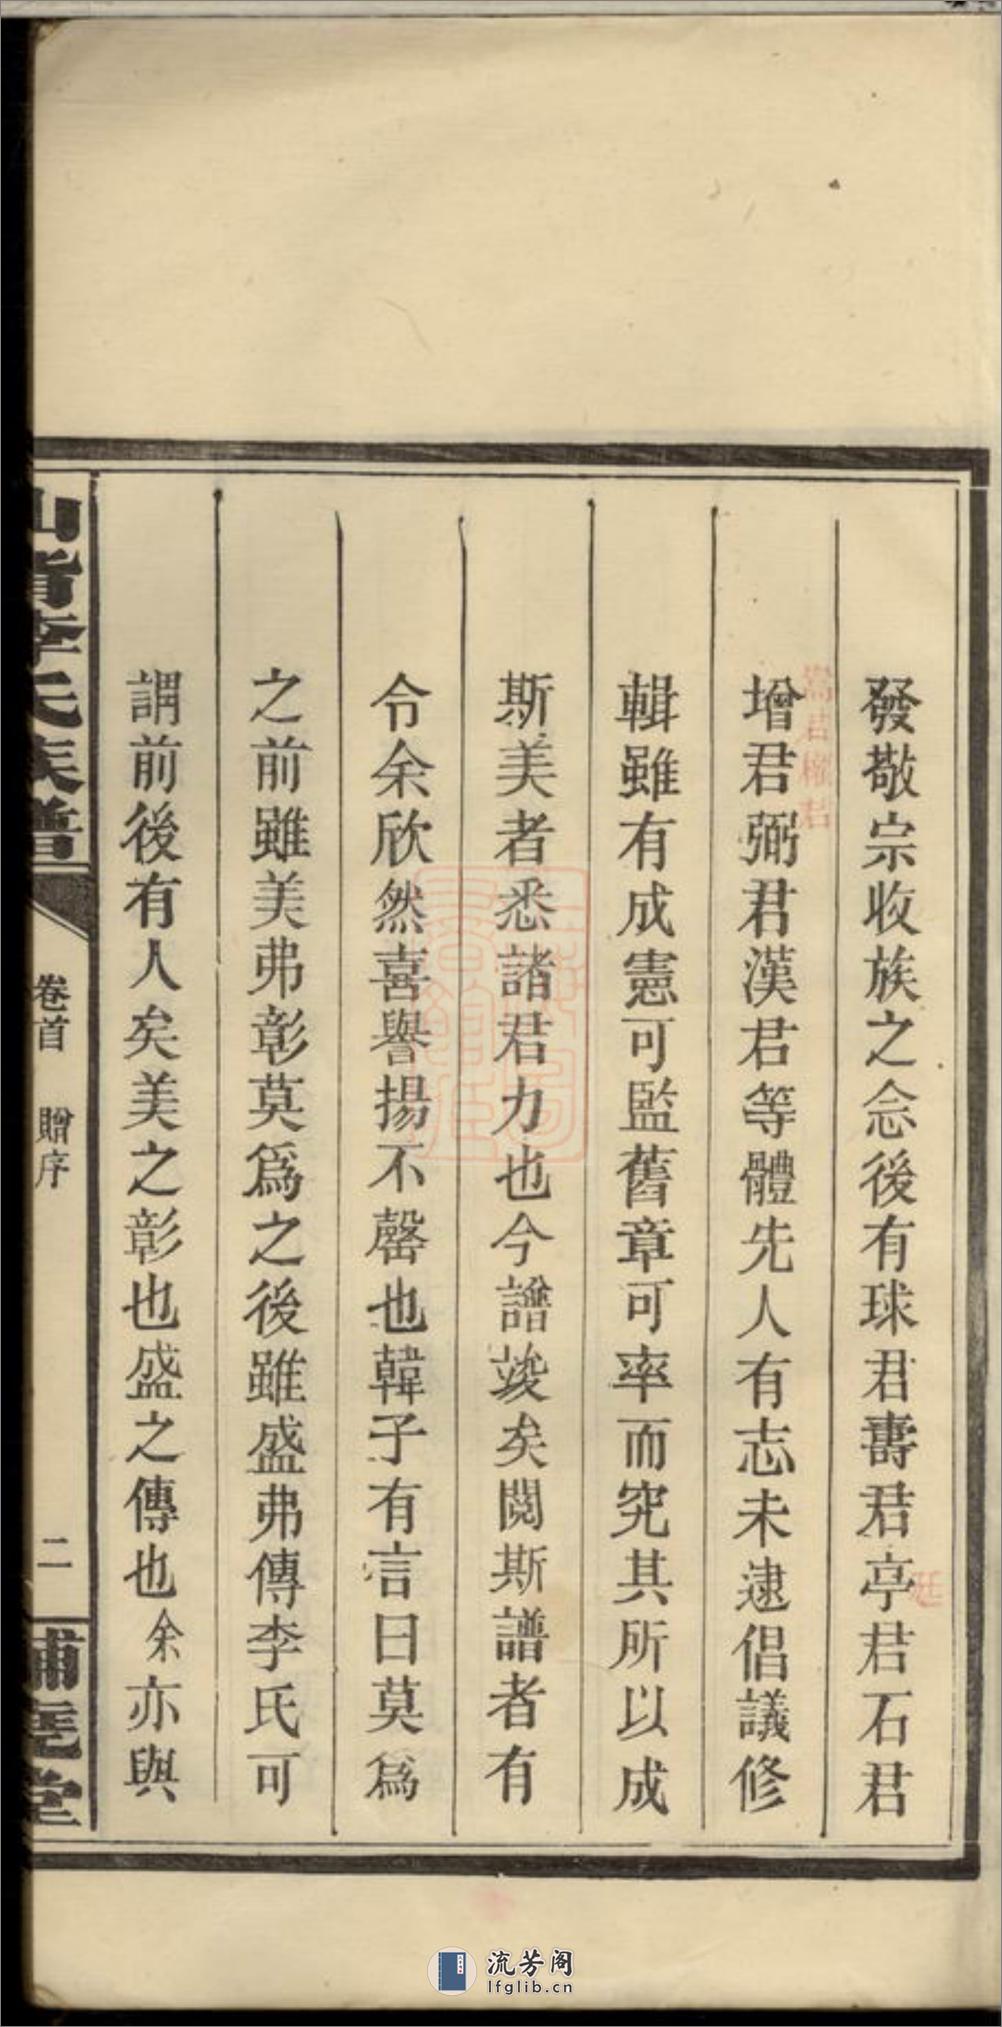 發敬宗收族之念後有球君壽君亭君石君
增君弼君漢君等體先人有志未逮倡議修
輯雖有成憲可監舊章可率而究其所以成
斯美者悉諸君力也今譜竣矣閱斯譜者有
令余欣然喜譽揚不罄也韓子有言曰莫爲
之前雖美弗彰莫爲之後雖盛弗傳李氏可
謂前後有人矣美之彰也盛之傳也余亦與
李氏族譜
卷首 贈序
二
堂
廷
流芳阁
lfglib.cn